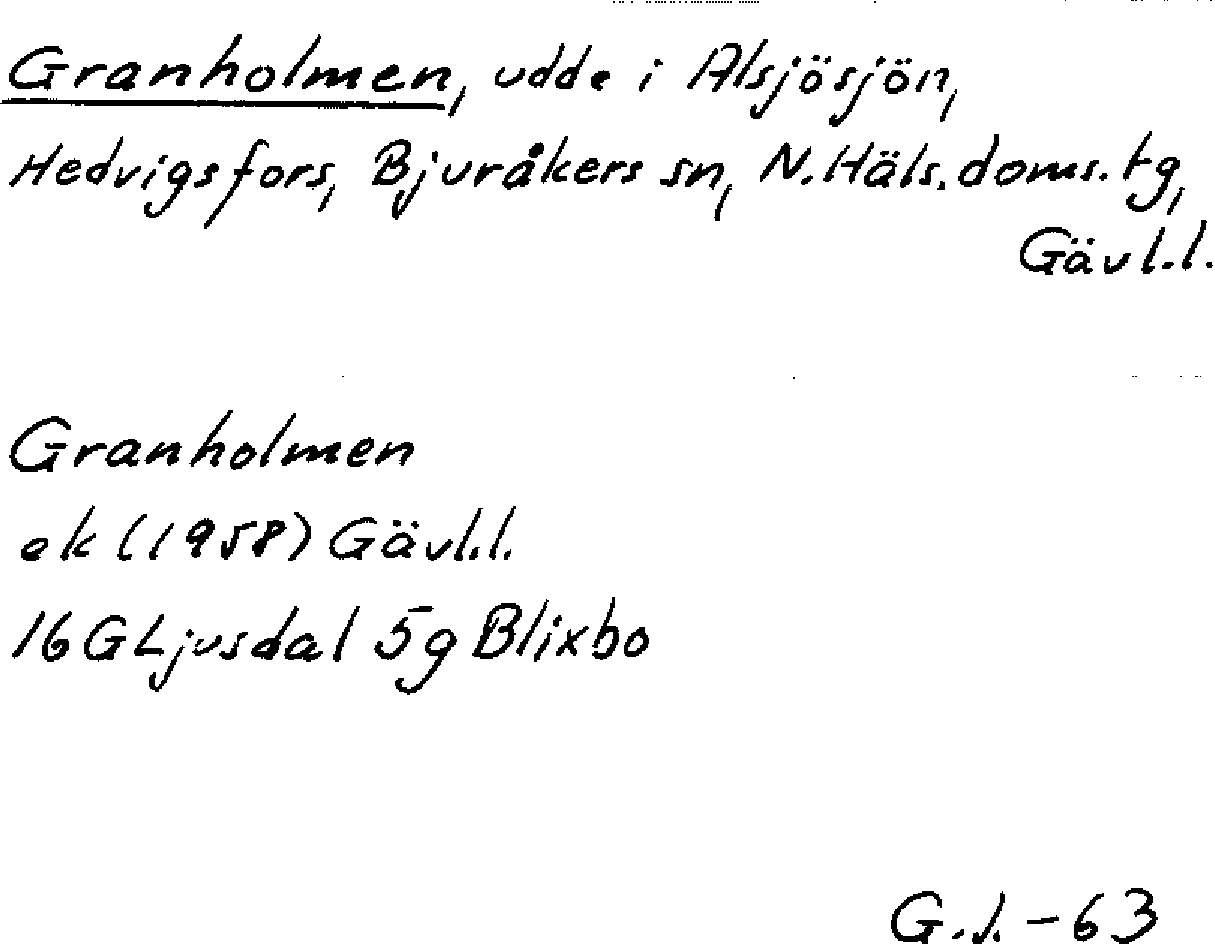 Granholmen, udde i Alsjösjön,
Hedvigsfors, Bjuråkers sn, N. Häls. doms. tg,
Gävl.l.
Granholmen
ek (1958) Gävl.l.
16 G Ljusdal 5g Blixbo
G.J. - 63